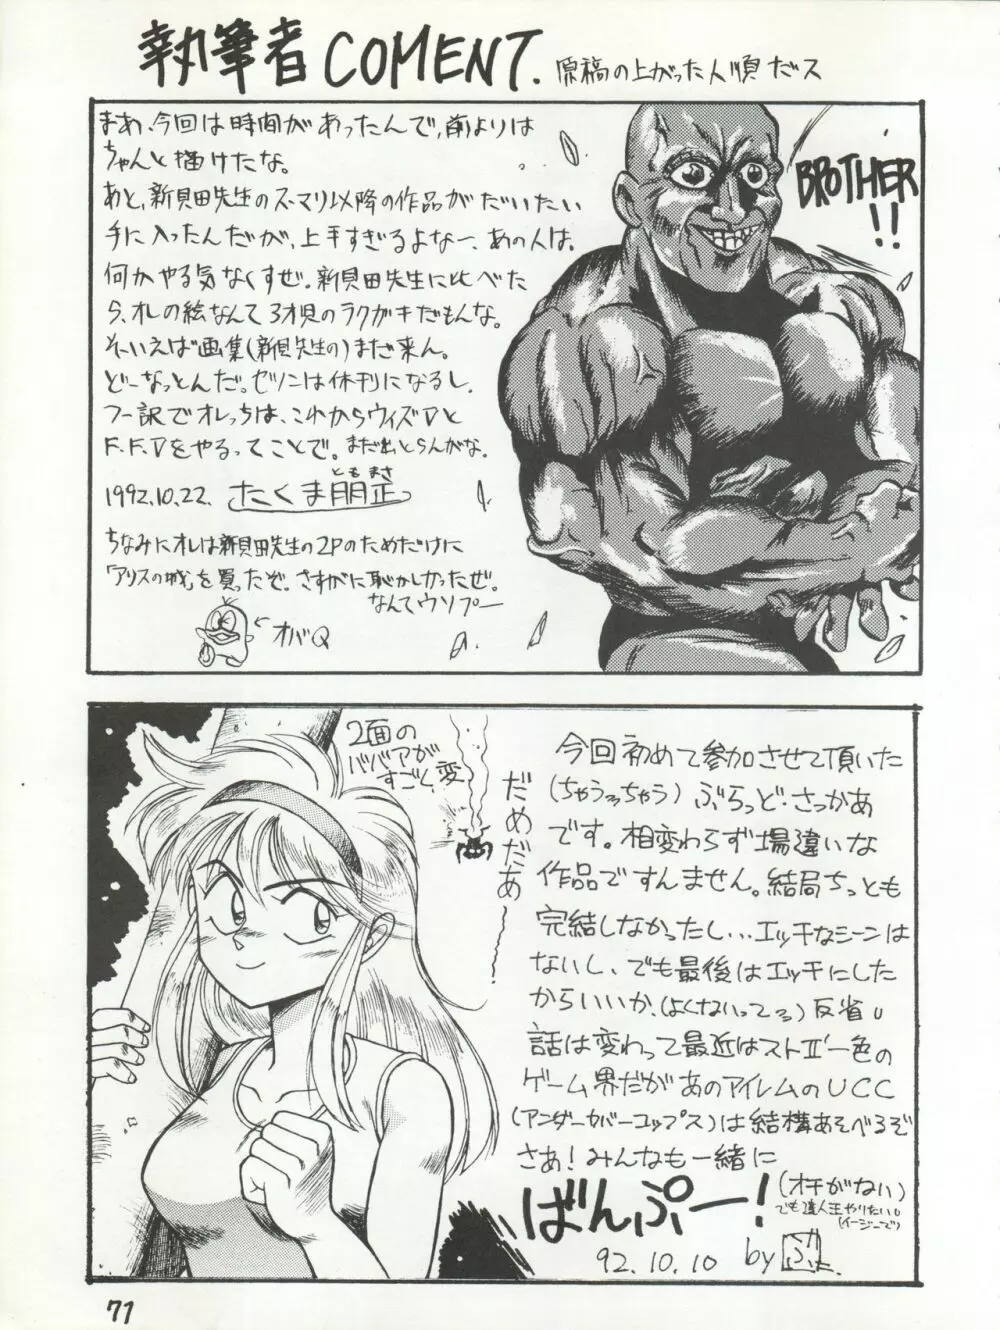 執筆者 COMENT. 原稿の上がった人順だス
まあ、今回は時間があったんで、前よりは
ちゃんと描けたな。
あと、新貝田先生のスーマリ以降の作品がだいたい
手に入ったんだが、上手すぎるよなー、あの人は。
何かやる気なくすぜ。新貝田先生に比べた
ら、オレの絵なんて3才児のラクガキだもんな。
そーいえば画集(新貝先生の)まだ来ん。
どーなっとんだ。ゼツノンは休刊になるし。
フー訳でオレっちは、これからウィズVと
F.F.Vをやるってことで。まだ出とらんがな。
1992.10.22. たくま朋正
ともまさ
ちなみにオレは新貝田先生の2Pのためだけに
「アリスの城」を買ったぞ。さすがに恥かしかったぜ。
なんてウソプー
←オバQ
BROTHER
!!
2面の
ババアが
すごく変
だめだぁ〜
今回初めて参加させて頂いた
(ちゃうちゃう) ぶらっど・さっかあ
です。相変わらず場違いな
作品ですんません。結局ちっとも
完結しなかったし...エッチなシーンは
ないし、でも最後はエッチにした
からいいか、(よくないってろ) 反省
話は変わって最近はストⅡ'一色の
ゲーム界だがあのアイレムのUCC
(アンダーカバーコップス)は結構あそべるぞ
さあ!みんなも一緒に
ばんぷー!
(オチがない)
でも達人王やりたい。
(イージーで)
92.10.10 by
71